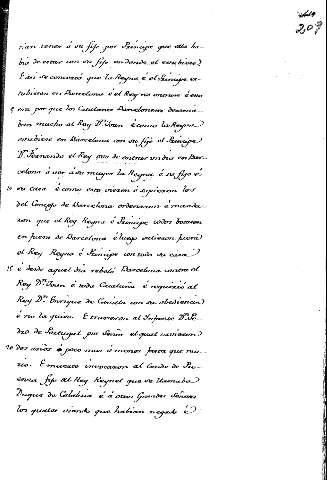 207
rian tener á su fijo por Prinsipe que alla ha-
bia de estar con su fijo endonde el estubiese
E asi se concertó que la Reyna é el Prinsipe es-
tubiesen en Barcelona é el Rey no entrase á ella
5 esto por que los Catalanes Barceloneses desama-
ban mucho al Rey Dn. Joan é como la Reyna
estubiese en Barcelona con su fijo el Prinsipe
Dn. Fernando el Rey ovo de entrar un dia en Bar-
celona á ver á su muger la Reyna é su fijo é
10 su casa é como esto vieron é supieron los
del Consejo de Barcelona ordenaron é manda-
ron que el Rey Reyna é Prinsipe todos botasen
en fuera de Barcelona é luego salieron fuera
el Rey Reyna é Prinsipe con toda su casa
15 é desde aquel dia rebeló Barcelona contra el
Rey Dn. Joan é toda Cataluña é requirió al
Rey Dn. Enrique de Castilla con su obediencia
é no la quiso. E tomaron al Infante Dn. Pe-
dro de Portugal por Señor el qual tubieron
20 dos años é poco mas ó menos fasta que mu-
rió. E muerto invocaron al Conde de Pro-
vensa fijo del Rey Reynel que se llamaba
Duque de Calabria é á otros Grandes Señores
los quales viendo que habian negado é